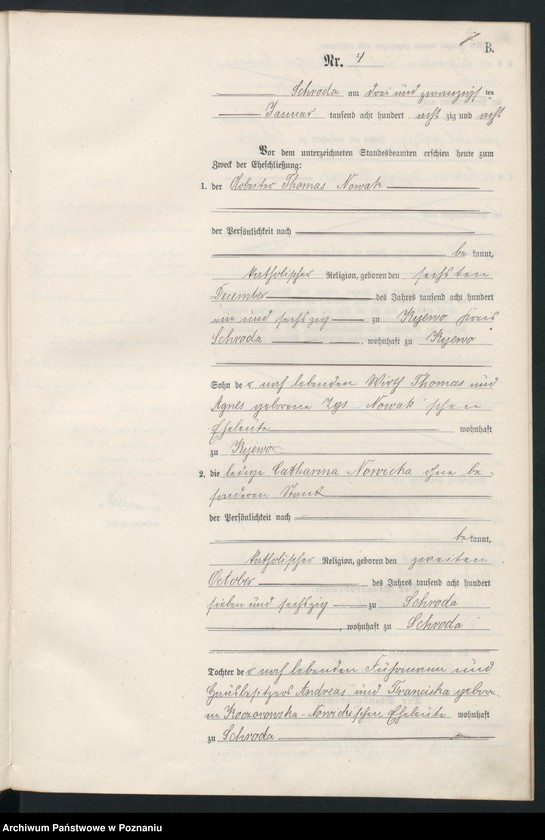 7 B.
Nr. 4
Schroda am drei und zwanzigsten
Januar tausend acht hundert acht zig und acht
Vor dem unterzeichneten Standesbeamten erschien heute zum
Zweck der Eheschließung:
1. der Arbeiter Thomas Nowak
der Persönlichkeit nach
be kannt,
katholischer Religion, geboren den sechsten
December des Jahres tausend acht hundert
ein und sechszig zu Kijewo Kreis
Schroda, wohnhaft zu Kijewo
Sohn der noch lebenden Wirth Thomas und
Agnes geborene Zys - Nowak'schen
Eheleute wohnhaft
zu Kijewo
2. die ledige Catharina Nowicka ohne be-
sonderen Stand
der Persönlichkeit nach
be kannt,
katholischer Religion, geboren den zweiten
October des Jahres tausend acht hundert
sieben und sechszig zu Schroda
, wohnhaft zu Schroda
Tochter der noch lebenden Fuhrmann und
Hausbesitzers Andreas und Franciska gebore-
ne Koczorowska - Nowicki'schen Eheleute wohnhaft
zu Schroda
Archiwum Państwowe w Poznaniu